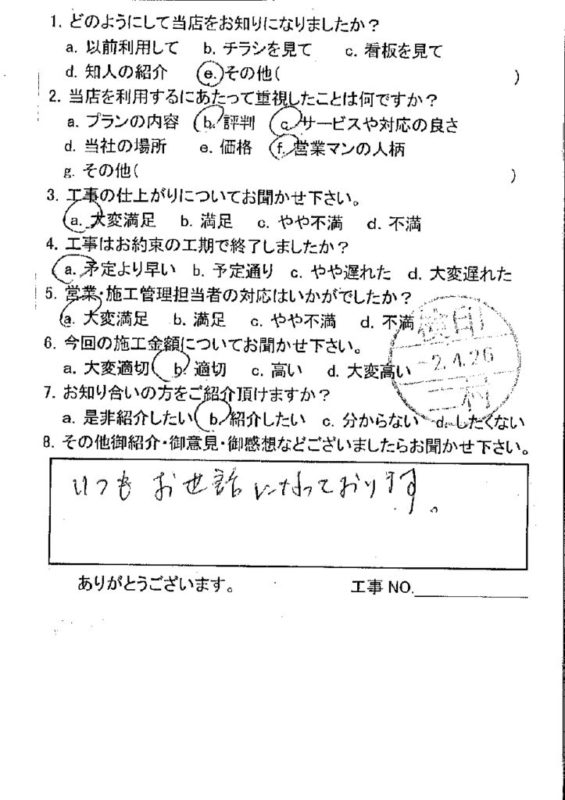 1. どのようにして当店をお知りになりましたか？
a. 以前利用して b. チラシを見て c. 看板を見て
d. 知人の紹介 e. その他( )
2. 当店を利用するにあたって重視したことは何ですか？
a. プランの内容 b. 評判 c. サービスや対応の良さ
d. 当社の場所 e. 価格 f. 営業マンの人柄
g. その他( )
3. 工事の仕上がりについてお聞かせ下さい。
a. 大変満足 b. 満足 c. やや不満 d. 不満
4. 工事はお約束の工期で終了しましたか？
a. 予定より早い b. 予定通り c. やや遅れた d. 大変遅れた
5. 営業・施工管理担当者の対応はいかがでしたか？
a. 大変満足 b. 満足 c. やや不満 d. 不満
検印
2.4.26
二村
6. 今回の施工金額についてお聞かせ下さい。
a. 大変適切 b. 適切 c. 高い d. 大変高い
7. お知り合いの方をご紹介頂けますか？
a. 是非紹介したい b. 紹介したい c. 分からない d. したくない
8. その他御紹介・御意見・御感想などございましたらお聞かせ下さい。
いつも お世話になっております。
ありがとうございます。 工事 NO.